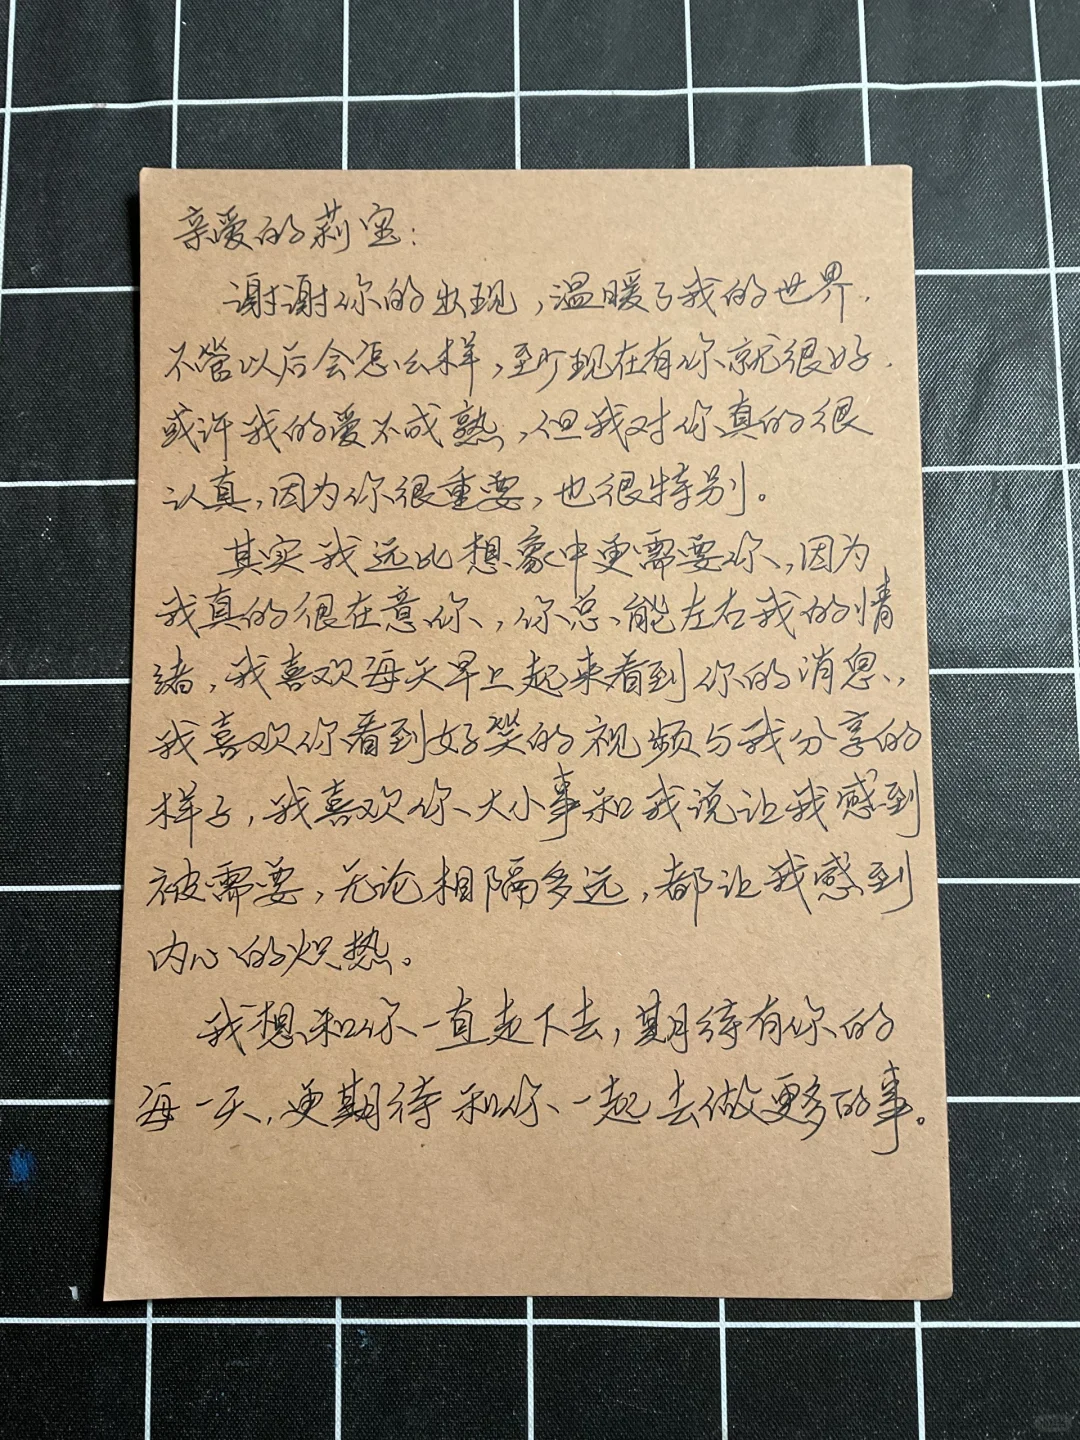 亲爱的莉宝：
谢谢你的出现，温暖了我的世界.
不管以后会怎么样，至少现在有你就很好.
或许我的爱不成熟，但我对你真的很
认真，因为你很重要，也很特别。
其实我远比想象中更需要你，因为
我真的很在意你，你总能左右我的情
绪，我喜欢每天早上起来看到你的消息，
我喜欢你看到好笑的视频与我分享的
样子，我喜欢你大小事和我说让我感到
被需要，无论相隔多远，都让我感到
内心的炽热。
我想和你一直走下去，期待有你的
每一天，更期待和你一起去做更多的事。